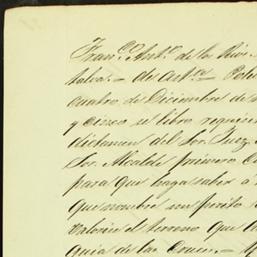 Fran.co Ant.o de la Riv
Salva.= de
cuatro de Diciembre de
y cinco se libro requi
dictamen del Sor. Juez
Sor. Alcalde primero C
para que haga saber á
que nombre un perito
valorie el terreno que
Guia de las Cruces.=